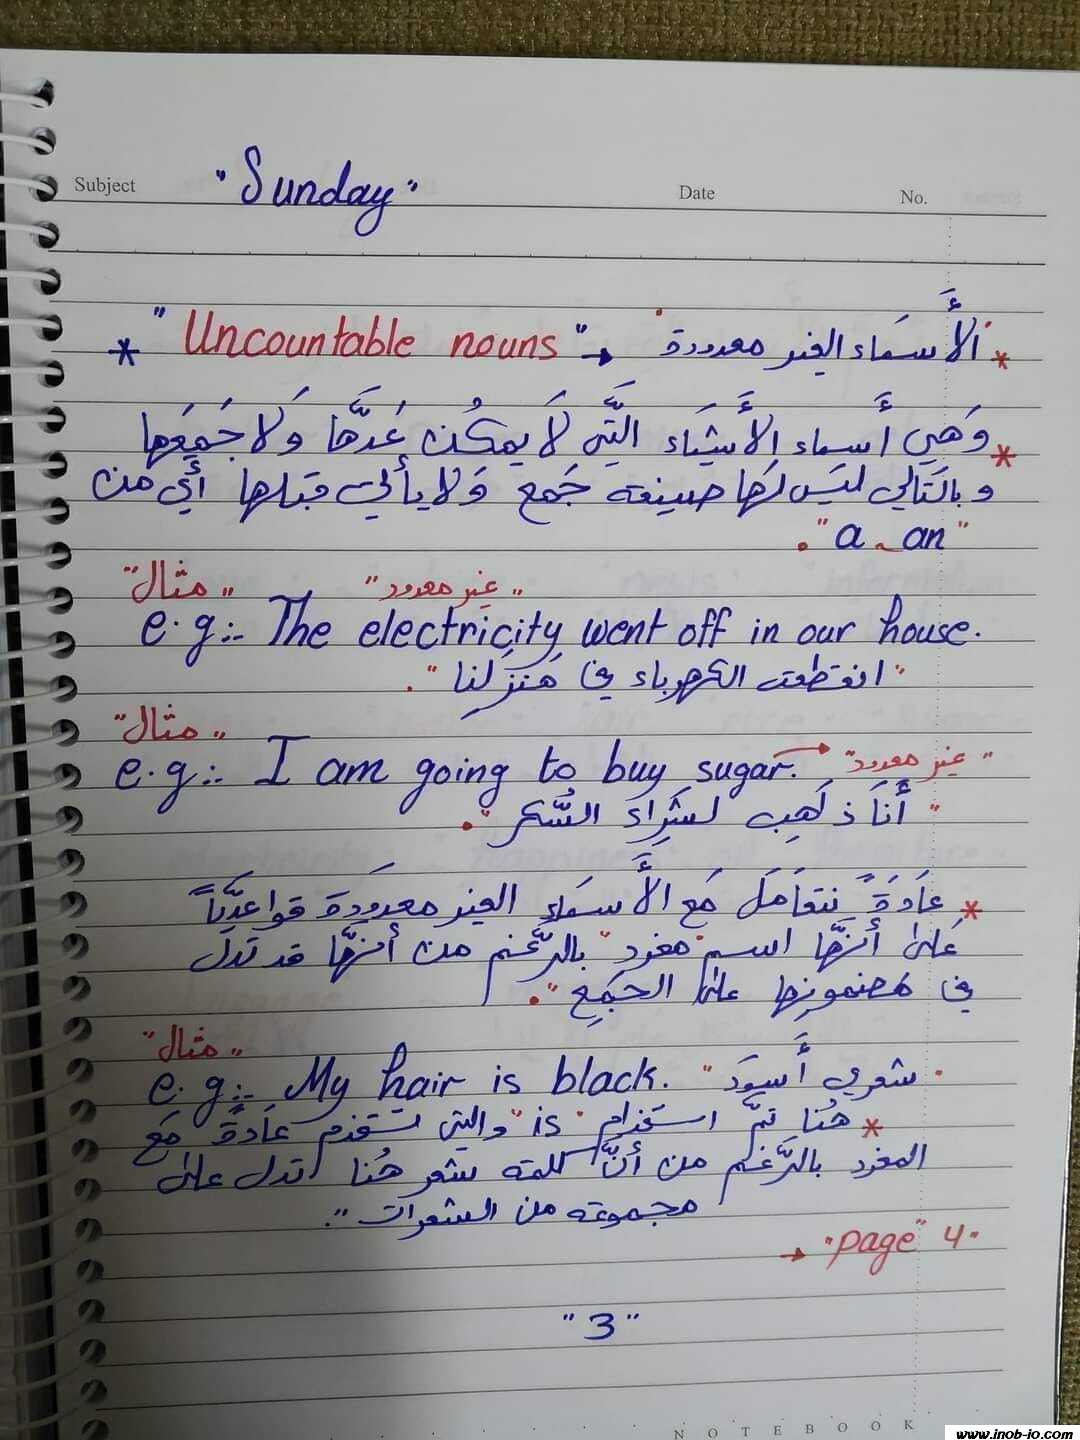 Subject "Sunday" Date No.
* الأَسمَاء الغير معدودة → "Uncountable nouns" *
* وَهَي أَسماء الأَشيَاء التَّي لَا يمكُن عَدَّها وَلا جَمَعَها
وبالتَالي ليَس لَها صيغه جَمع وَلا يأتي قبلها أي من
"a - an".
"مثال" "غير معدود"
e.g:- The electricity went off in our house.
"انقطعت الكهرباء في مَنزِلنا".
"مثال"
e.g:- I am going to buy sugar. → "غير معدود"
"أَنَا ذَاهِب لشَراءَ السُّكر".
* عَادَةً نتعَامَل مَع الأَسمَاء الغير معدَودَة قواعديَّاً
عَلى أَنهَّا اسم "مفرد" بالرَّغم من أَنهَّا قد تَدل
في مضمونها على "الجَمِع".
"مثال"
e.g:- My hair is black. "شعري أَسوَد"
* هُنا تمَّ استخدام "is" والتي تستخدم عَادَةً مَع
المفرد بالرَّغم من أنَّ كلمه شعر هُنا تدل على
مجموعه من الشعرات".
→ "page" 4"
"3"
NOTEBOOK
www.inob-io.com